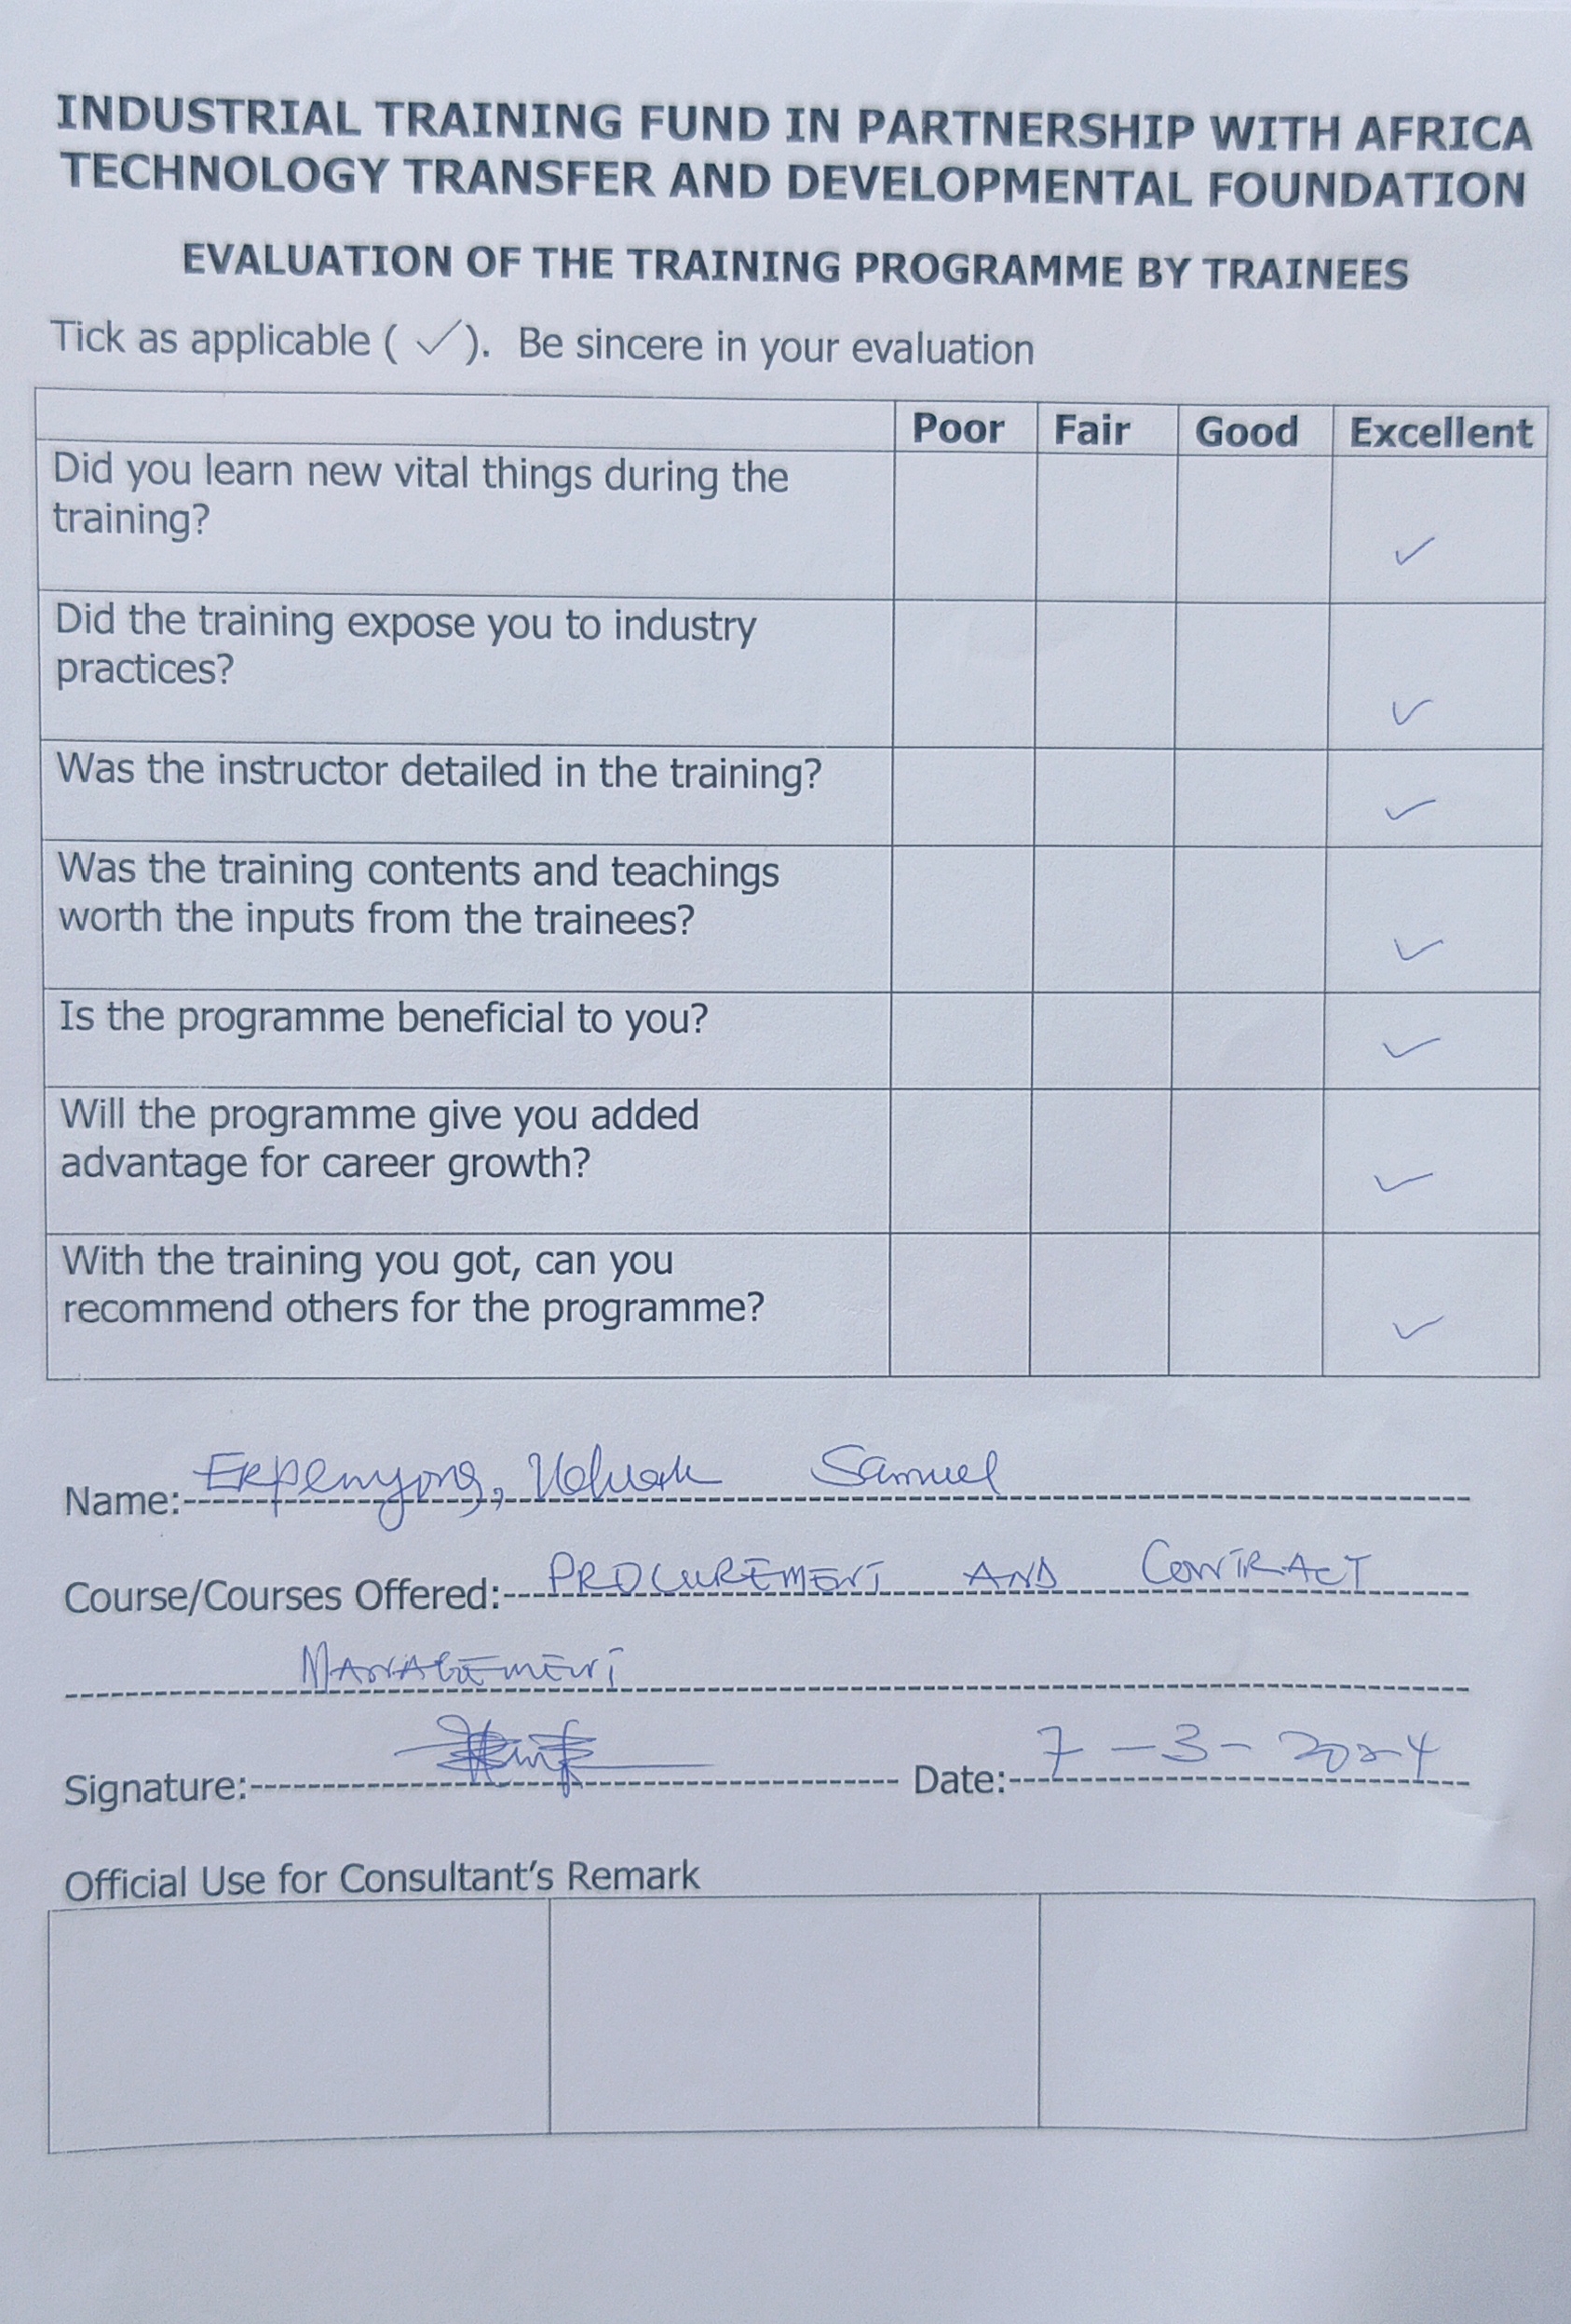 INDUSTRIAL TRAINING FUND IN PARTNERSHIP WITH AFRICA
TECHNOLOGY TRANSFER AND DEVELOPMENTAL FOUNDATION
EVALUATION OF THE TRAINING PROGRAMME BY TRAINEES
Tick as applicable ( ✓). Be sincere in your evaluation
Poor Fair Good Excellent
Did you learn new vital things during the
training?
✓
Did the training expose you to industry
practices?
✓
Was the instructor detailed in the training?
✓
Was the training contents and teachings
worth the inputs from the trainees?
✓
Is the programme beneficial to you?
✓
Will the programme give you added
advantage for career growth?
✓
With the training you got, can you
recommend others for the programme?
✓
Name: Ekpenyong, Samuel
Course/Courses Offered: PROCUREMENT AND CONTRACT
MANAGEMENT
Signature: Date: 7-3-2024
Official Use for Consultant's Remark